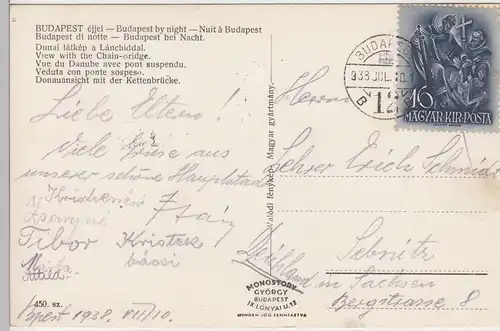 BUDAPEST éjjel — Budapest by night — Nuit à Budapest
Budapest di notte — Budapest bei Nacht.
Dunai látkép a Lánchiddal.
View with the Chain-bridge.
Vue du Danube avec pont suspendu.
Veduta con ponte sospeso.
Donauansicht mit der Kettenbrücke.
Liebe Eltern!
Viele Grüsse aus
unserer schöne Hauptstadt
Tibor
Kristek
bácsi
450. sz.
Bpest 1938. VIII/10.
Valódi fénykép. Magyar gyártmány.
BUDAPEST
938 JUL. 10.
B 12
16
MAGYAR·KIR·POSTA
Herrn
Lehrer Erich Schmidt
Sebnitz
in Sachsen
Bergstrasse 8
MONOSTORY
GYÖRGY
BUDAPEST
IX. LÓNYAI U. 12
MINDEN JOG FENNTARTVA